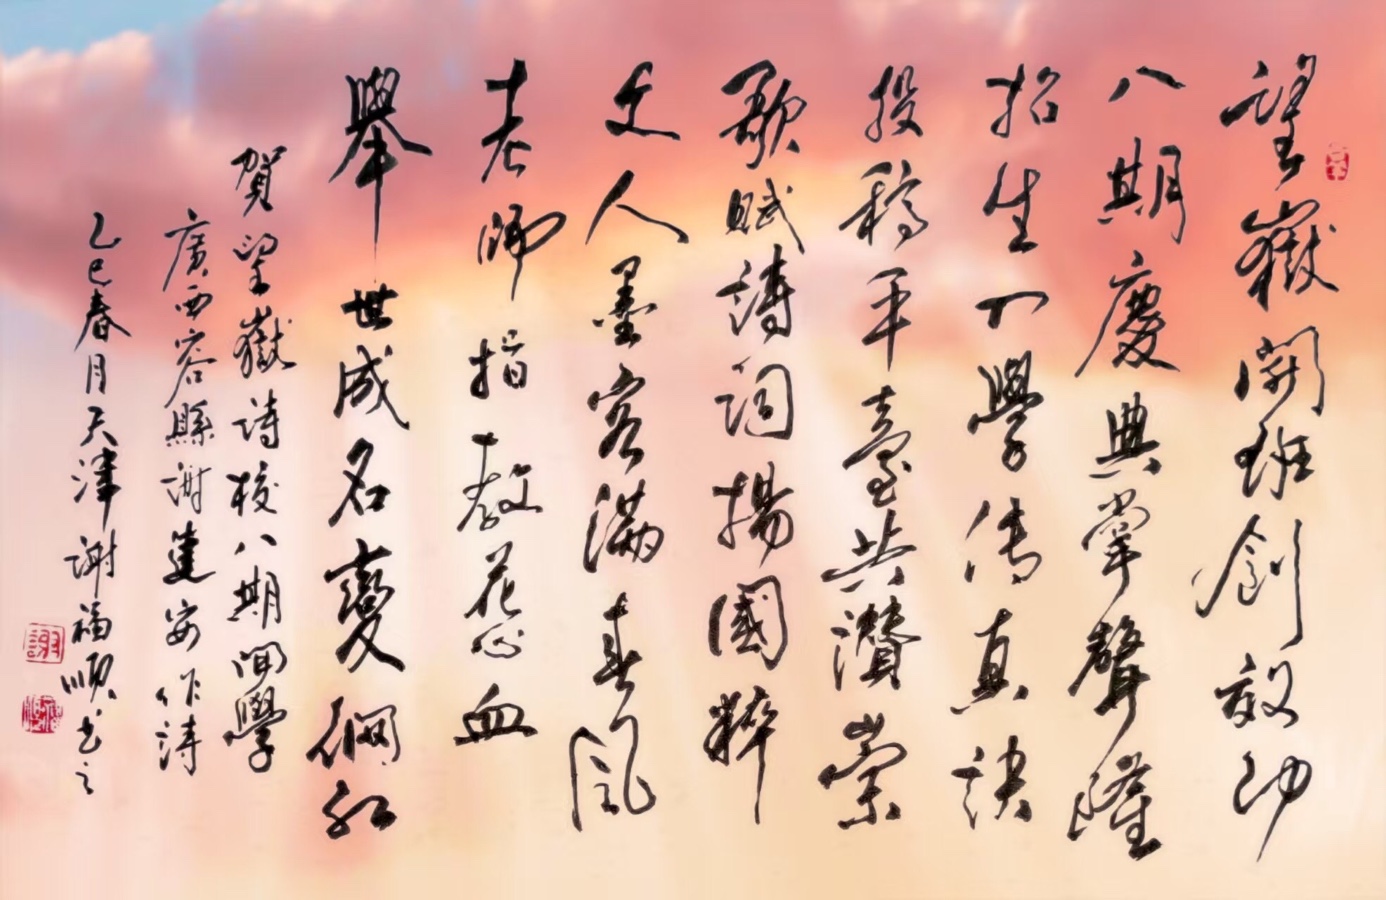 望嶽開班創效功
八期慶典掌聲隆
招生入學传真訣
投稿平臺共讚崇
歌賦詩詞揚國粹
文人墨客满春風
老師指教花心血
舉世成名變網紅
賀望嶽詩校八期開學
廣西容縣謝建安作诗
乙巳春月天津谢福順书之
謝